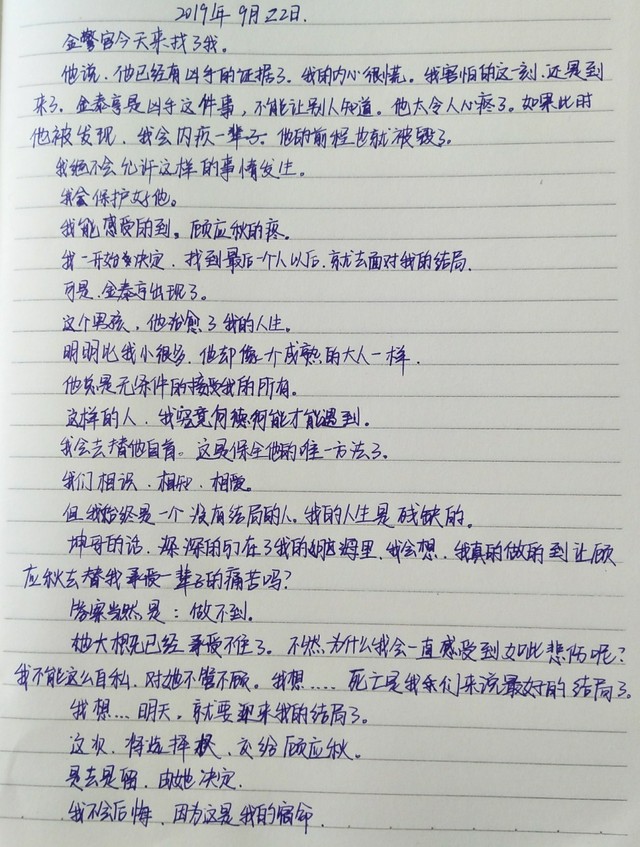 2019年9月22日.
金警官今天来找了我。
他说.他已经有凶手的证据了.我的内心很慌。我害怕的这一刻.还是到
来了.金泰亨是凶手这件事,不能让别人知道。他太令人心疼了。如果此时
他被发现.我会内疚一辈子.他的前程也就被毁了。
我绝不会允许这样的事情发生。
我会保护好他。
我能感受的到。顾应秋的疼。
我一开始决定.找到最后一个人以后.就去面对我的结局.
可是.金泰亨出现了。
这个男孩,他治愈了我的人生。
明明比我小很多.他却像个成熟的大人一样.
他总是无条件的接受我的所有。
这样的人.我究竟何德何能才能遇到。
我会去替他自首。这是保全他的唯一方法了。
我们相识.相知.相爱。
但我始终是一个没有结局的人.我的人生是残缺的。
坤哥的话.深深的印在了我的脑海里.我会想.我真的做的到让顾
应秋去替我承受一辈子的痛苦吗?
答案当然是:做不到.
她大概已经承受不住了。不然,为什么我会一直感受到如此悲伤呢?
我不能这么自私.对她不管不顾。我想....死亡是我们来说最好的结局了。
我想...明天.就要迎来我的结局了。
这次.将选择权.交给顾应秋。
是去是留.由她决定.
我不会后悔.因为这是我的宿命.